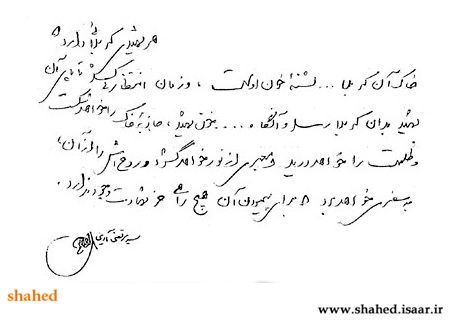 هر شهیدی کربلائی دارد
خاک آن کربلا ... تشنهٔ خون اوست ، و زمان انتظار می‌کشد تا پای آن
شهید بدان کربلا رسد و آنگاه .... خون شهید ، جاذبهٔ خاک را خواهد شکست
و ظلمت را خواهد درید و معبری از نور خواهد گشود و روحش را از آن ،
به سفری خواهد برد که برای پیمودن آن هیچ راهی جز شهادت وجود ندارد .
سید مرتضی آوینی
shahed
www.shahed.isaar.ir